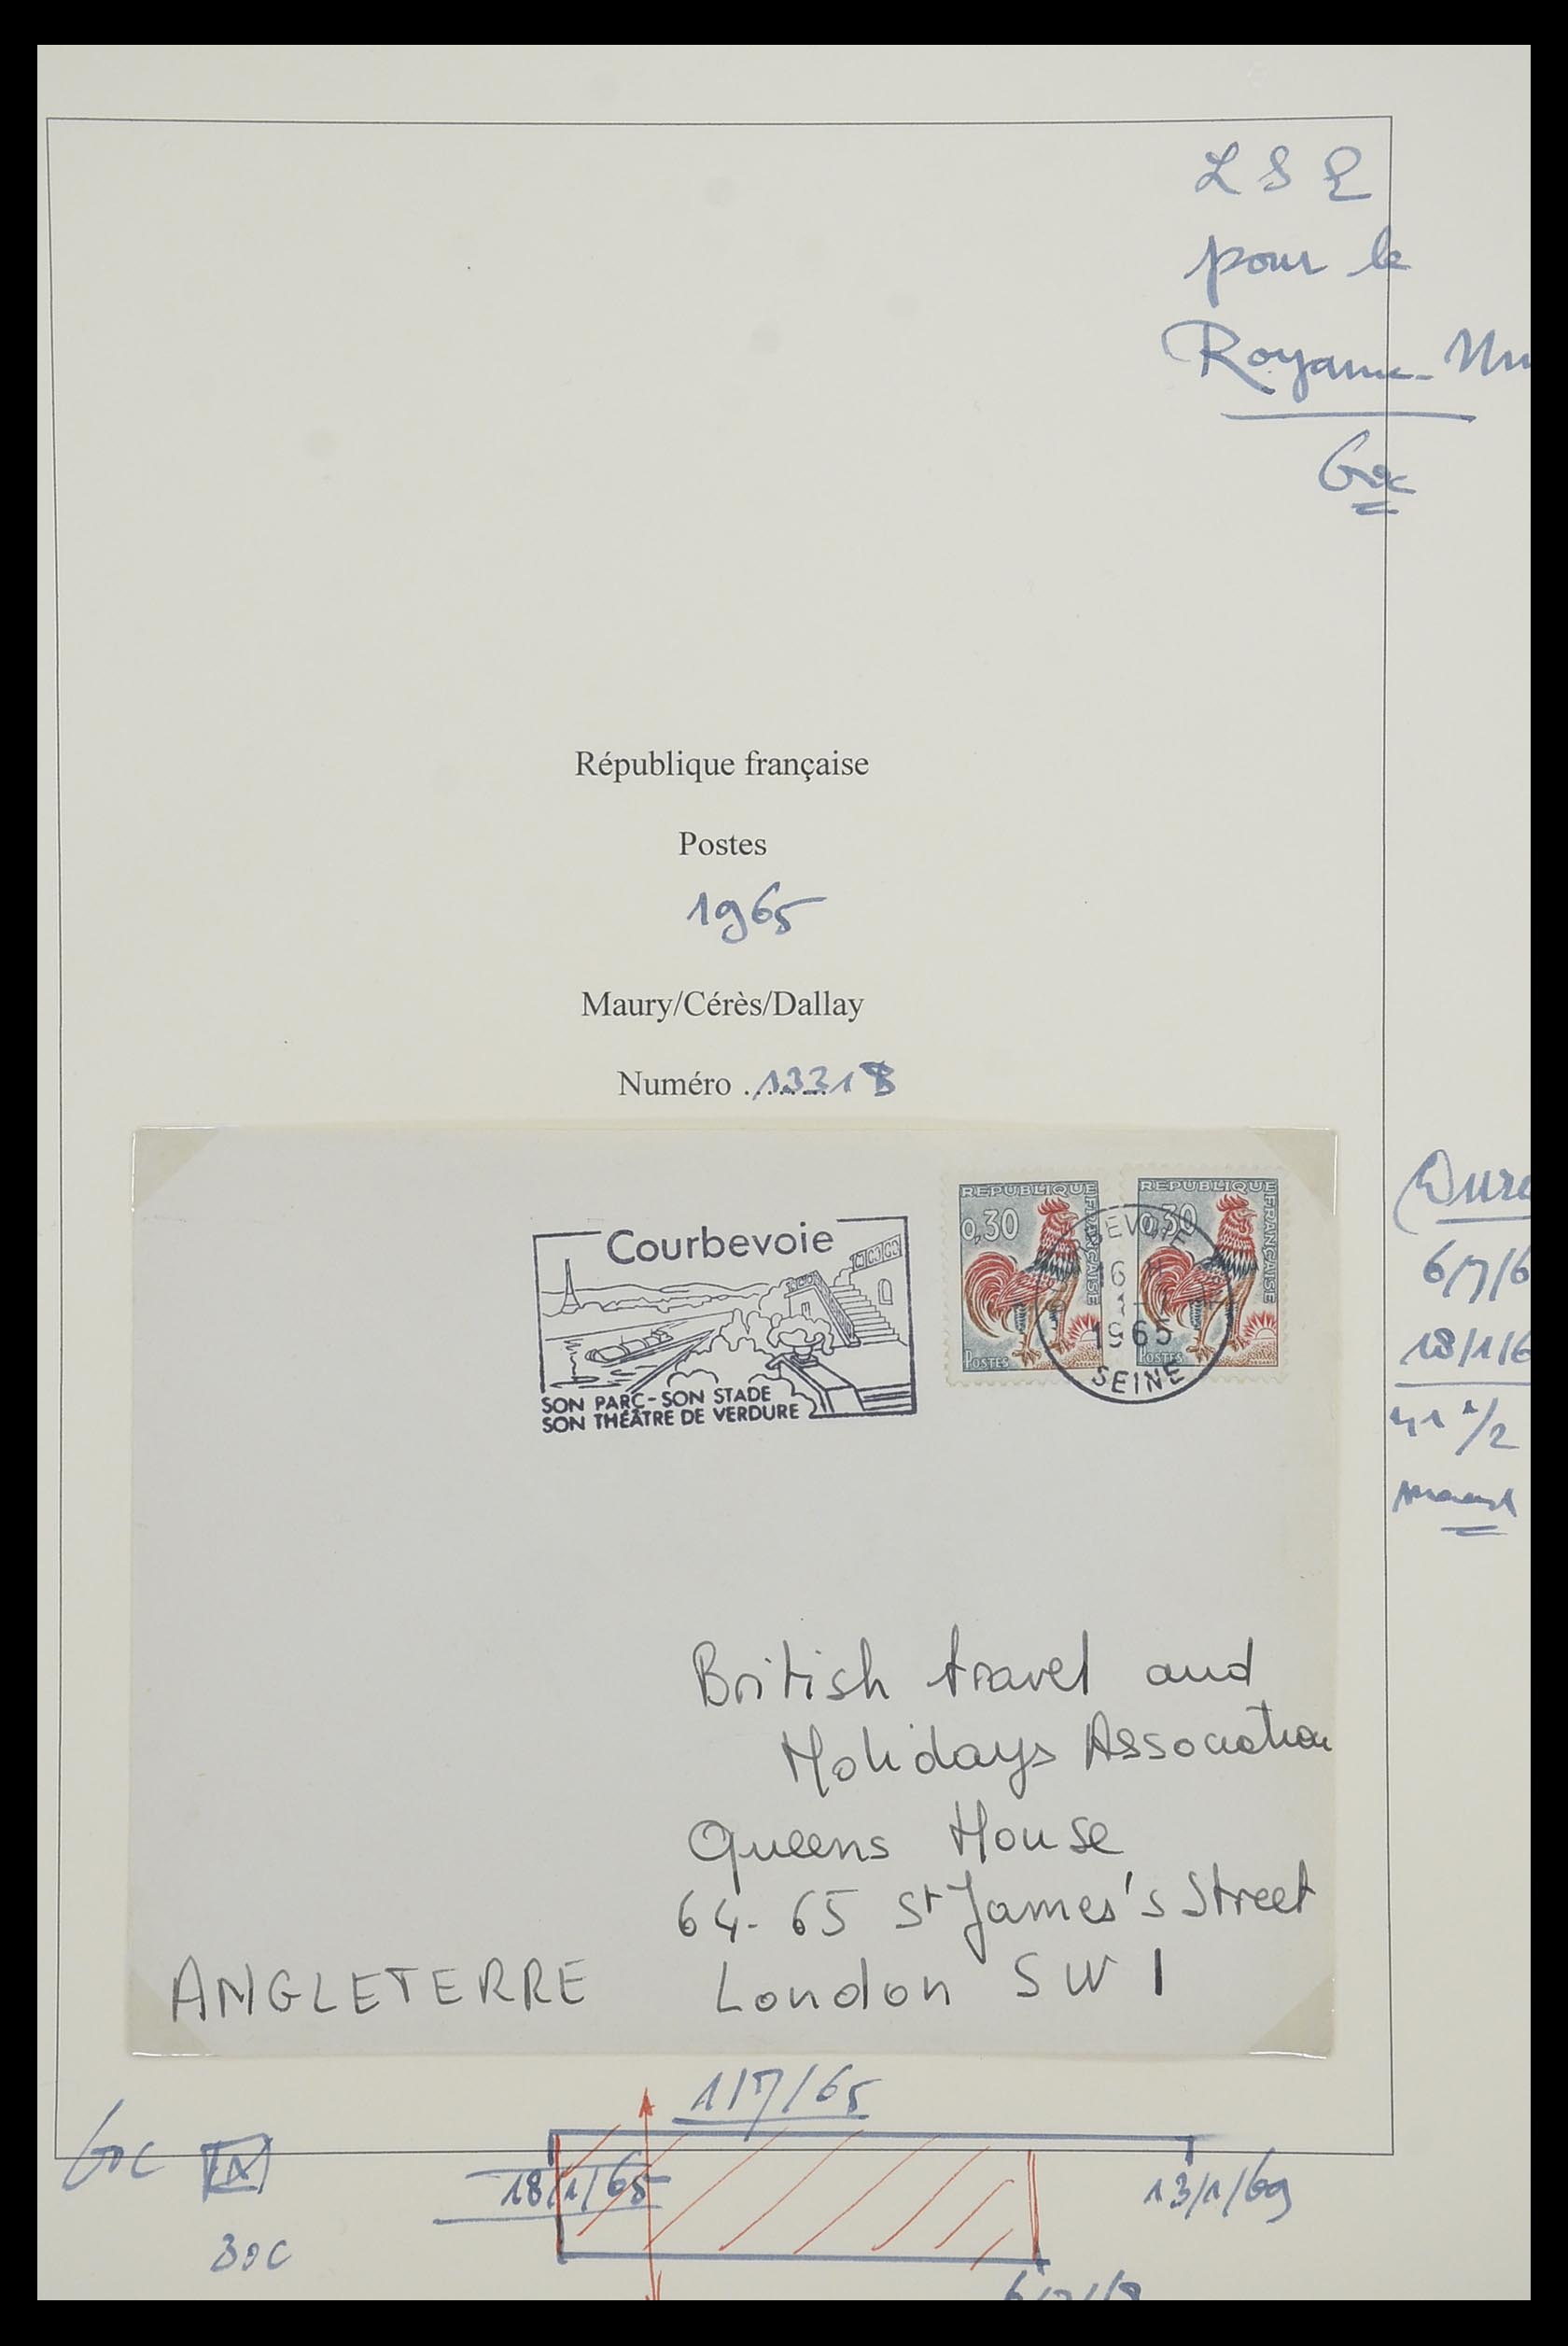 L S E
pour le
Royaume-Un
60c
République française
Postes
1965
Maury/Cérès/Dallay
Numéro ........ 1331B
Durée
6/7/6
18/1/6
41 1/2
Courbevoie
SON PARC - SON STADE
SON THÉÂTRE DE VERDURE
REPUBLIQUE
FRANÇAISE
0,30
POSTES
REPUBLIQUE
FRANÇAISE
0,30
POSTES
1965
SEINE
British travel and
Holidays Association
Queens House
64-65 St James's Street
London SW 1
ANGLETERRE
1/7/65
60c
18/1/65
13/1/69
30c